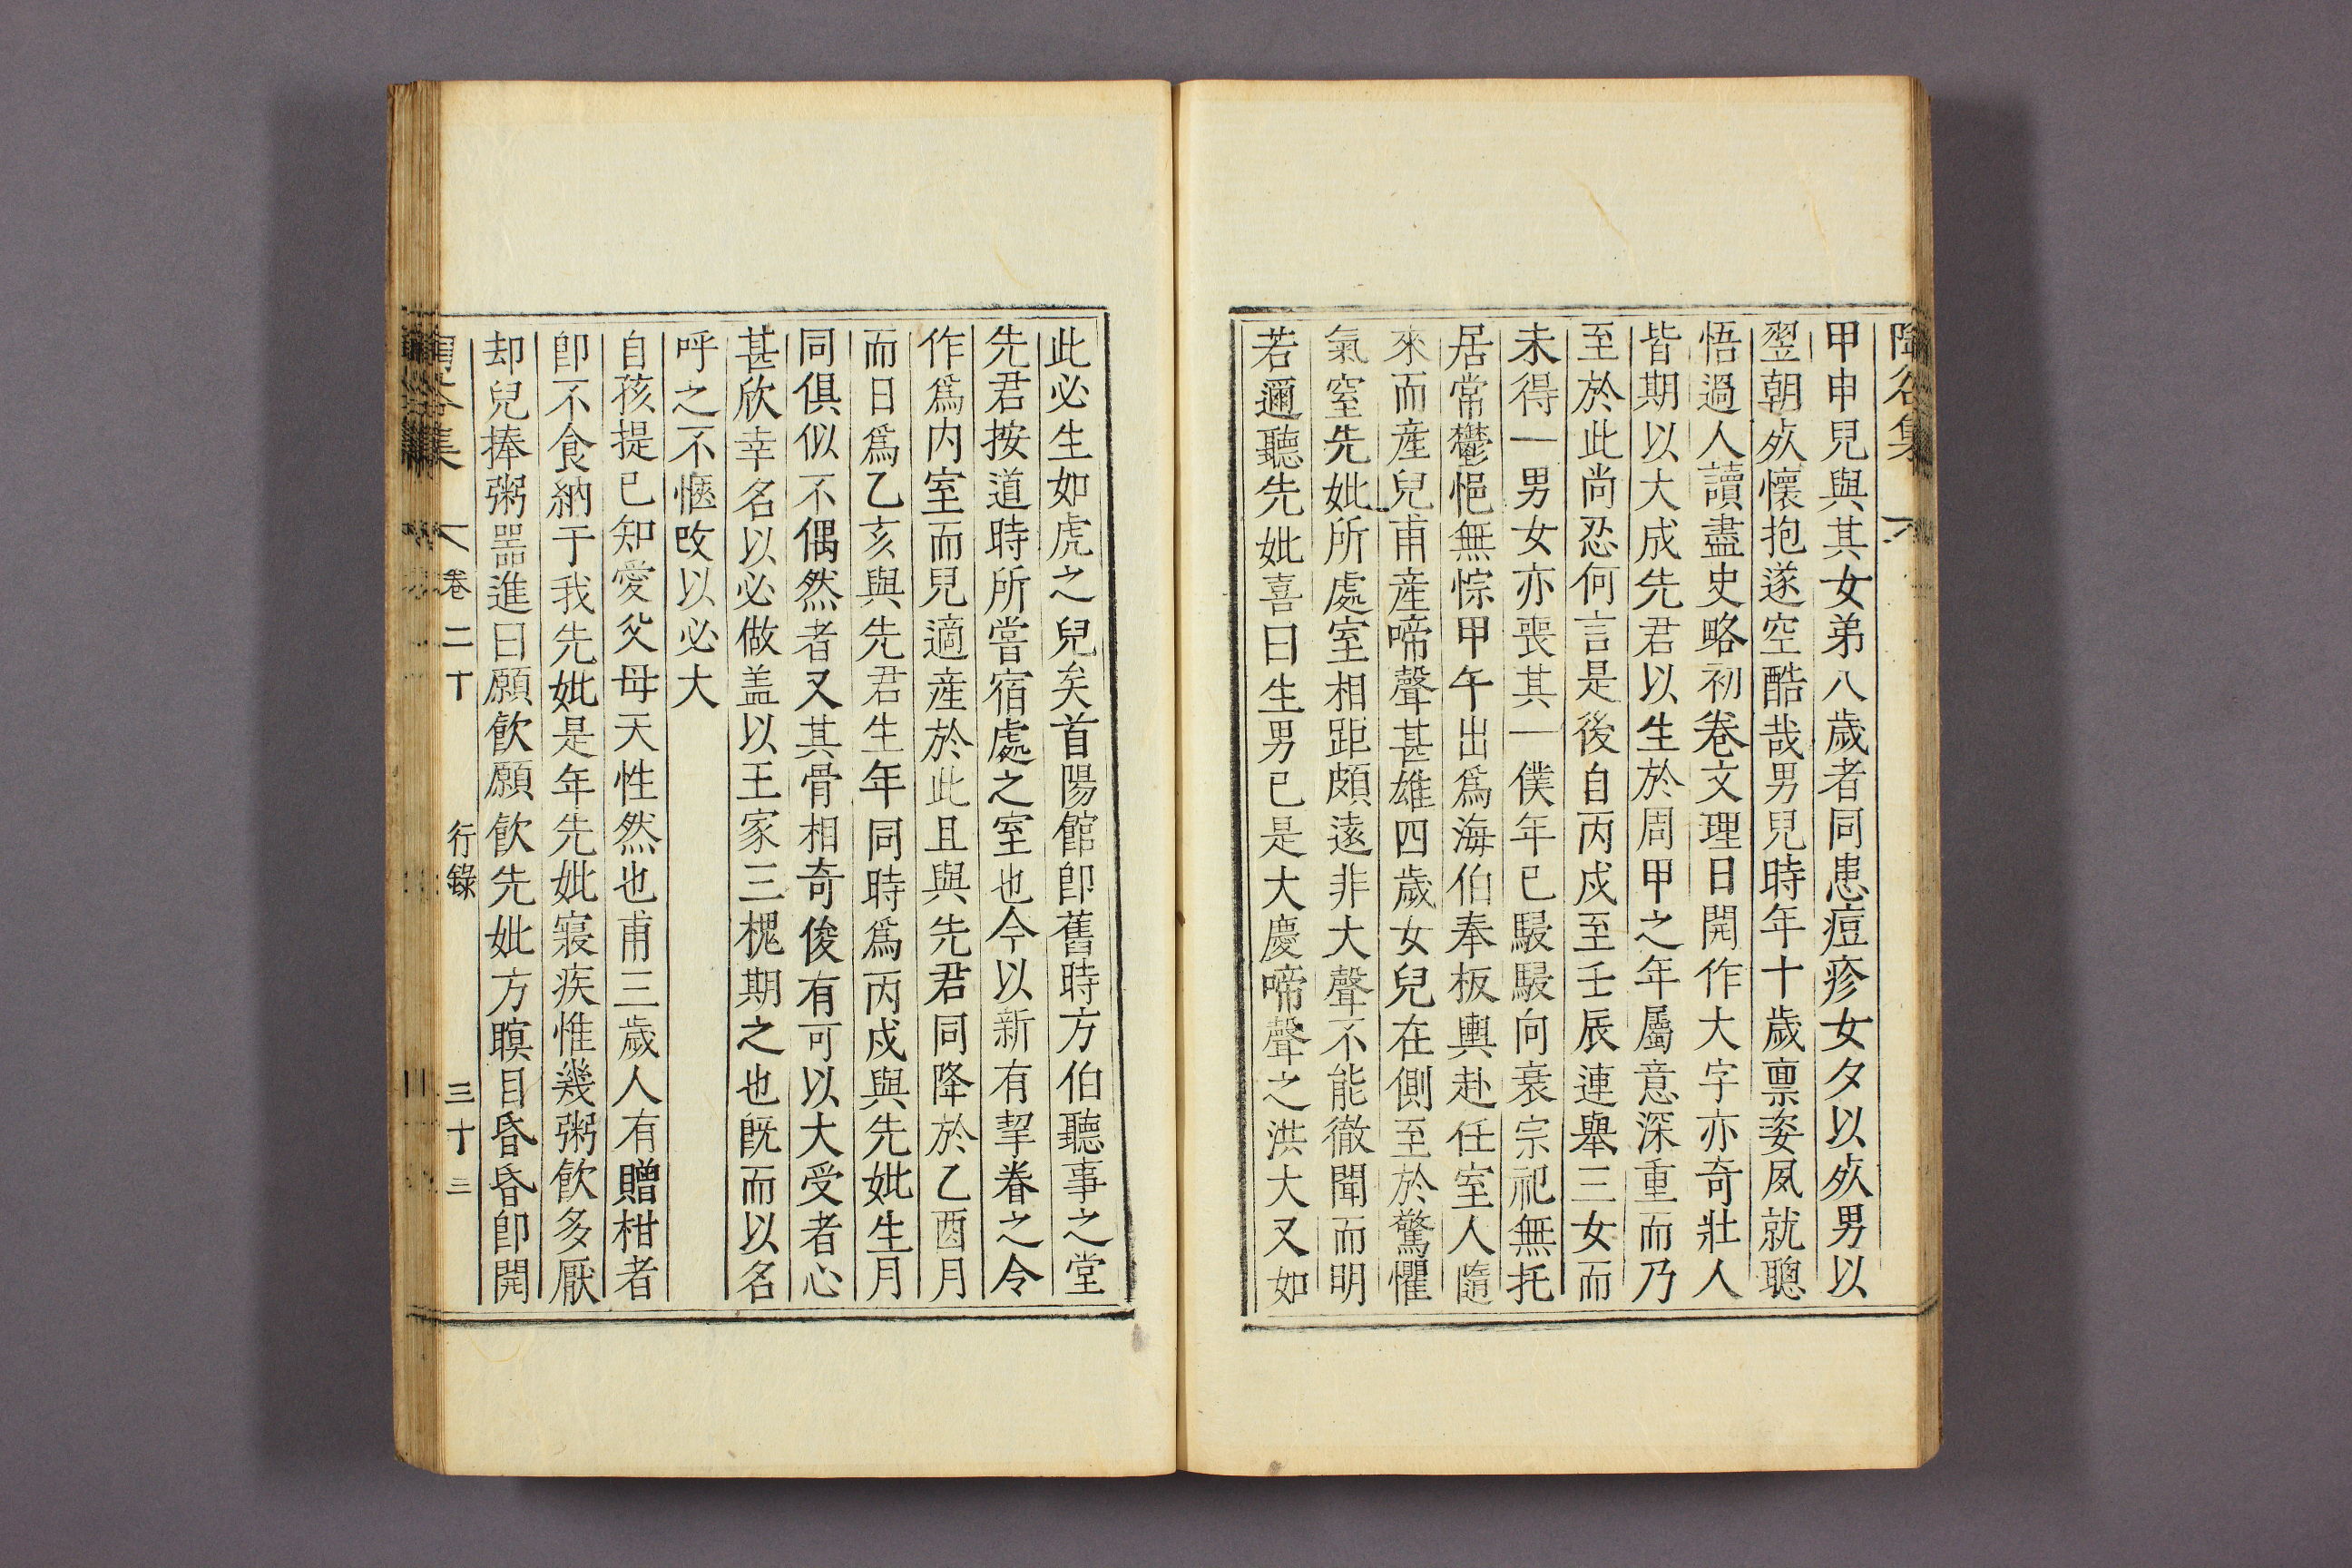 陶谷集
甲申兒與其女弟八歲者同患痘疹女夕以㱙男以
翌朝㱙懷抱遂空酷哉男兒時年十歲禀姿夙就聰
悟過人讀盡史略初卷文理日開作大字亦奇壯人
皆期以大成先君以生於周甲之年屬意深重而乃
至於此尚忍何言是後自丙戌至壬辰連舉三女而
未得一男女亦喪其一僕年已駸駸向衰宗祀無托
居常鬱悒無悰甲午出爲海伯奉板輿赴任室人隨
來而産兒甫産啼聲甚雄四歲女兒在側至於驚懼
氣窒先妣所處室相距頗遠非大聲不能徹聞而明
若邇聽先妣喜曰生男已是大慶啼聲之洪大又如
此必生如虎之兒矣首陽館卽舊時方伯聽事之堂
先君按道時所嘗宿處之室也今以新有挈眷之令
作爲内室而兒適産於此且與先君同降於乙酉月
而日爲乙亥與先君生年同時爲丙戌與先妣生月
同俱似不偶然者又其骨相奇俊有可以大受者心
甚欣幸名以必做盖以王家三槐期之也旣而以名
呼之不愜改以必大
自孩提已知愛父母天性然也甫三歲人有贈柑者
卽不食納于我先妣是年先妣寢疾惟幾粥飮多厭
却兒捧粥器進曰願飮願飮先妣方瞑目昏昏卽開
集 卷二十 行錄 三十三